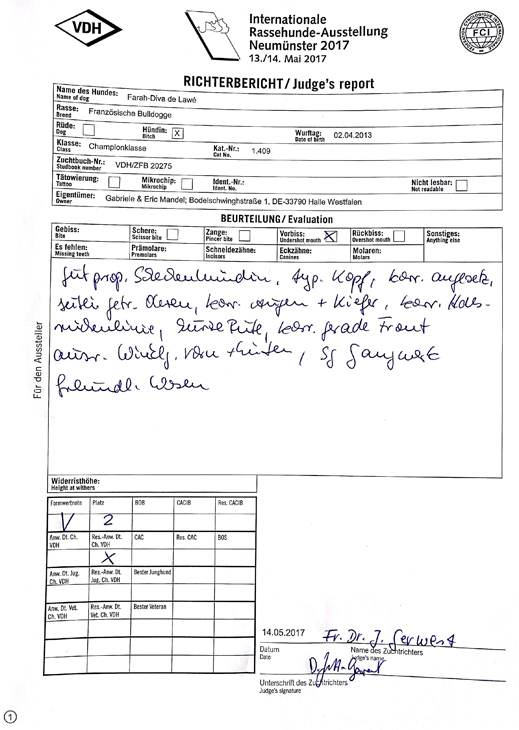 VDH
Internationale
Rassehunde-Ausstellung
Neumünster 2017
13./14. Mai 2017
FCI
RICHTERBERICHT / Judge's report
Name des Hundes: Farah-Diva de Lawé
Name of dog
Rasse: Französische Bulldogge
Breed
Rüde: Hündin: X Wurftag: 02.04.2013
Dog Bitch Date of birth
Klasse: Championklasse Kat.-Nr.: 1.409
Class Cat No.
Zuchtbuch-Nr.: VDH/ZFB 20275
Studbook number
Tätowierung: Mikrochip: Ident.-Nr.: Nicht lesbar:
Tattoo Mikrochip Ident. No. Not readable
Eigentümer: Gabriele & Eric Mandel; Bodelschwinghstraße 1, DE-33790 Halle Westfalen
Owner
BEURTEILUNG / Evaluation
Gebiss: Schere: Zange: Vorbiss: X Rückbiss: Sonstiges:
Bite Scissor bite Pincer bite Undershot mouth Overshot mouth Anything else
Es fehlen: Prämolare: Schneidezähne: Eckzähne: Molaren:
Missing teeth Premolars Incisors Canines Molars
gut prop. Scheckenhündin, typ. Kopf, korr. angesetz,
getr. Ohren, korr. Augen + Kiefer, korr.
kurze Rute, korr. gerade Front
ausr. Winklg. vorn + hinten, sg Gangwerk
freundl. Wesen
Für den Aussteller
Widerristhöhe:
Height at withers
Formwertnote Platz BOB CACIB Res. CACIB
V 2
Anw. Dt. Ch. VDH Res.-Anw. Dt. Ch. VDH CAC Res. CAC BOS
X
Anw. Dt. Jug. Ch. VDH Res.-Anw. Dt. Jug. Ch. VDH Bester Junghund
Anw. Dt. Vet. Ch. VDH Res.-Anw. Dt. Vet. Ch. VDH Bester Veteran
14.05.2017 Fr. Dr. J.
Datum Name des Zuchtrichters
Date Judge's name
Unterschrift des Zuchtrichters
Judge's signature
1